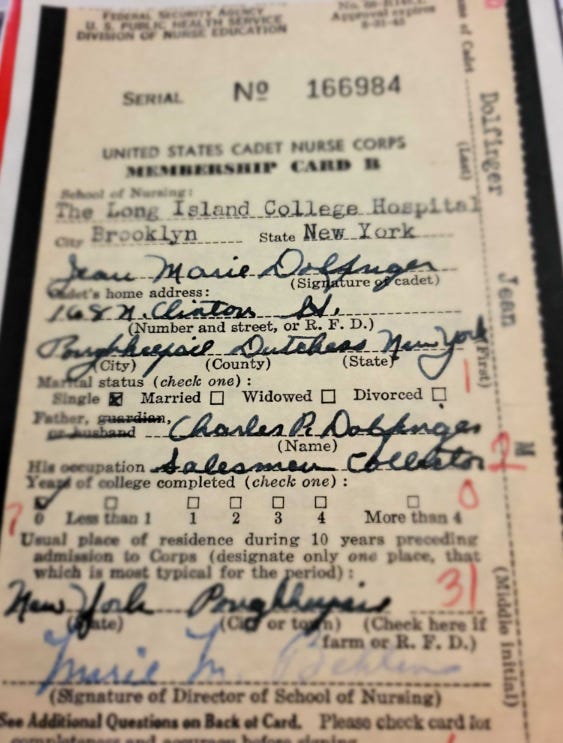 FEDERAL SECURITY AGENCY
U. S. PUBLIC HEALTH SERVICE
DIVISION OF NURSE EDUCATION
Approval expires
SERIAL No 166984
UNITED STATES CADET NURSE CORPS
MEMBERSHIP CARD B
School of Nursing:
The Long Island College Hospital
City Brooklyn State New York
Jean Marie Dolfinger
(Signature of cadet)
Cadet's home address:
168 N. Clinton St.
(Number and street, or R. F. D.)
Poughkeepsie Dutchess New York
(City) (County) (State)
Marital status (check one):
Single Married Widowed Divorced
Father, guardian,
or husband Charles P. Dolfinger
(Name)
His occupation Salesman Collector
Years of college completed (check one):
0 Less than 1 1 2 3 4 More than 4
Usual place of residence during 10 years preceding
admission to Corps (designate only one place, that
which is most typical for the period):
New York Poughkeepsie
(State) (City or town) (Check here if
farm or R. F. D.)
Marie M.
(Signature of Director of School of Nursing)
See Additional Questions on Back of Card. Please check card for
completeness and accuracy before signing
Name of Cadet
Dolfinger
(Last)
Jean
(First)
M
(Middle initial)
1
2
0
31
7